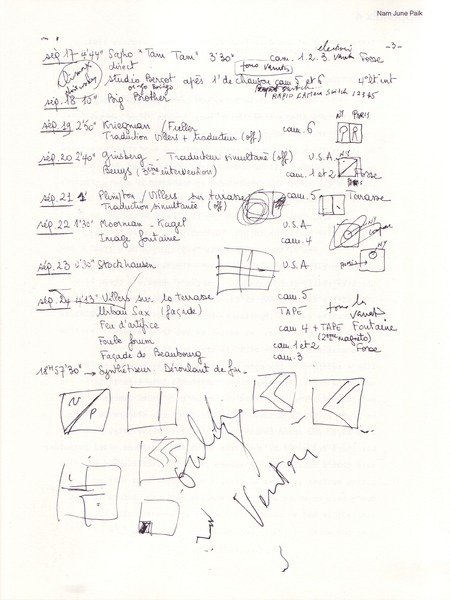 Nam June Paik
- 3 -
séq. 17 4'44" Sapo "Tam Tam" 3'30" cam. 1. 2. 3. Fosse
direct
studio Berçot après 1' de chanson cam 5 et 6
RAPID CAMERA SWITCH 12345
séq. 18 15" Big Brother
NY PARIS
séq. 19 2'50" Kriegman / Fuller cam. 6
Traduction Villers + traducteur (off)
NY
séq. 20 2'40" Ginsberg - Traducteur simultané (off) U.S.A.
Beuys (3ème intervention) cam. 1 et 2 Fosse
Paris
séq. 21 1' Plimpton / Villers sur terrasse cam. 5 Terrasse
Traduction simultanée (off)
séq. 22 1'30" Moorman - Kagel U.S.A NY
Image fontaine cam. 4
NY
séq. 23 0'30" Stockhausen U.S.A Paris
séq. 24 4'13" Villers sur la terrasse cam. 5
Urban Sax (façade) TAPE
Feu d'artifice cam 4 + TAPE Fontaine
(2ème magnéto)
Foule forum cam. 1 et 2 Fosse
Façade de Beaubourg cam. 3
18H57'30" → Synthétiseur. Déroulant de fin -
N
P